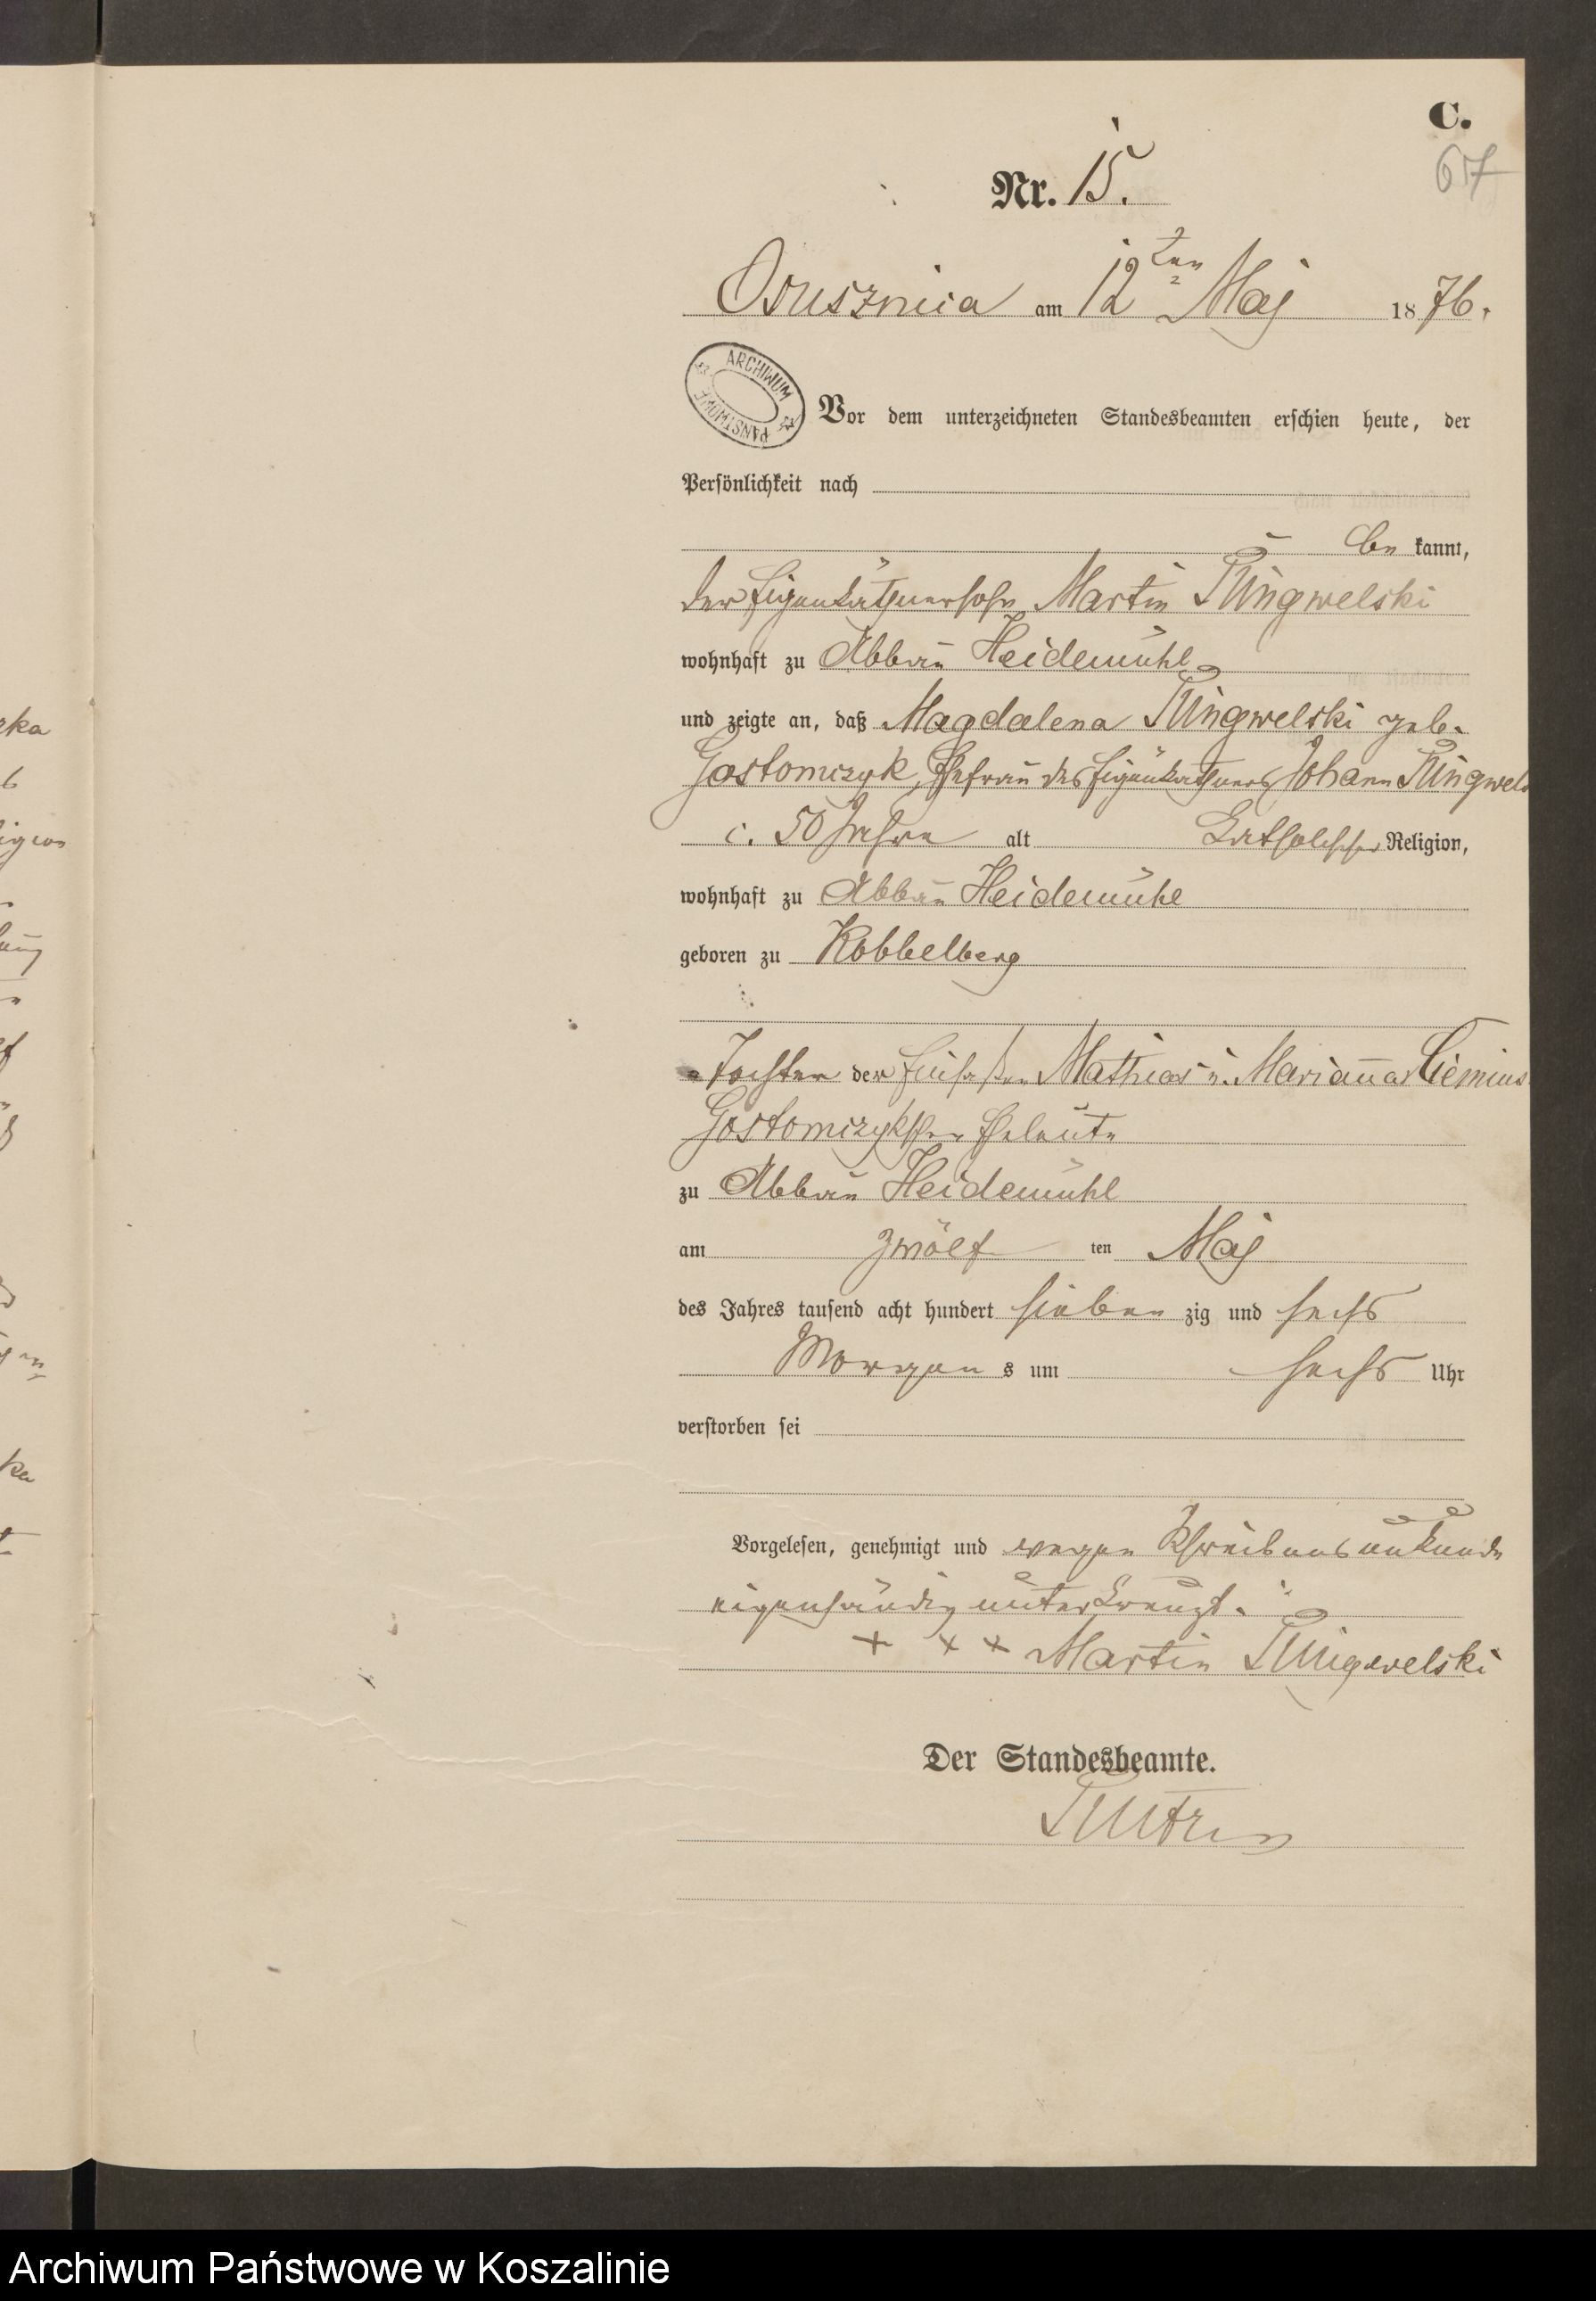 C.
67
Nr. 15.
Osusznica am 12ten Maj 1876.
ARCHIWUM PAŃSTWOWE
Vor dem unterzeichneten Standesbeamten erschien heute, der
Persönlichkeit nach
be kannt,
der Eigenkäthnersohn Martin
wohnhaft zu Abbau Heidemühl
und zeigte an, daß Magdalena geb.
Gostomczyk, Ehefrau des Eigenkäthners Johann
c. 50 Jahre alt katholischer Religion,
wohnhaft zu Abbau Heidemühl
geboren zu Kobbelberg
Tochter der Einsaßen Mathias u. Marianna
Gostomczykschen Eheleute
zu Abbau Heidemühl
am zwölf ten Maj
des Jahres tausend acht hundert sieben zig und sechs
Morgen s um sechs Uhr
verstorben sei
Vorgelesen, genehmigt und wegen Schreibensunkunde
eigenhändig unterkreuzt.
+ + + Martin
Der Standesbeamte.
Archiwum Państwowe w Koszalinie